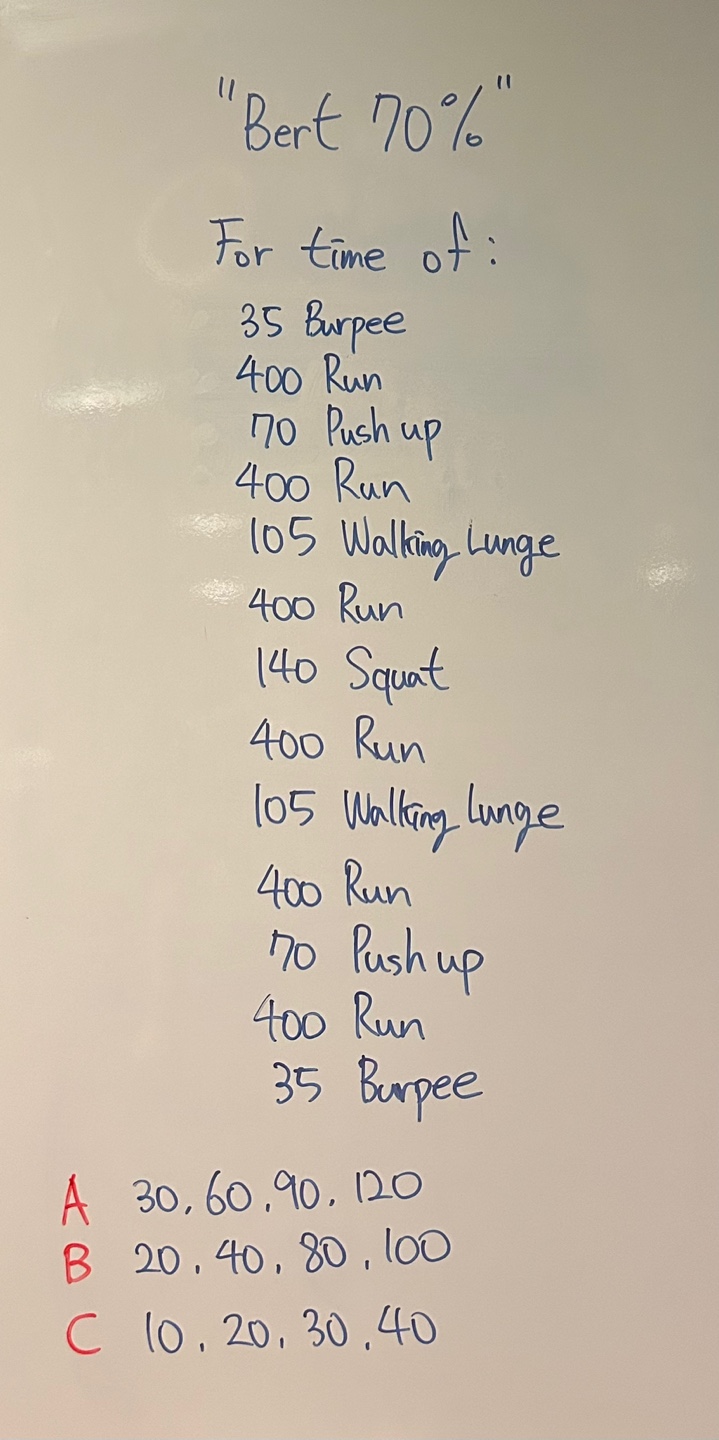 "Bert 70%"
For time of:
35 Burpee
400 Run
70 Push up
400 Run
105 Walking Lunge
400 Run
140 Squat
400 Run
105 Walking Lunge
400 Run
70 Push up
400 Run
35 Burpee
A 30, 60, 90, 120
B 20, 40, 80, 100
C 10, 20, 30, 40